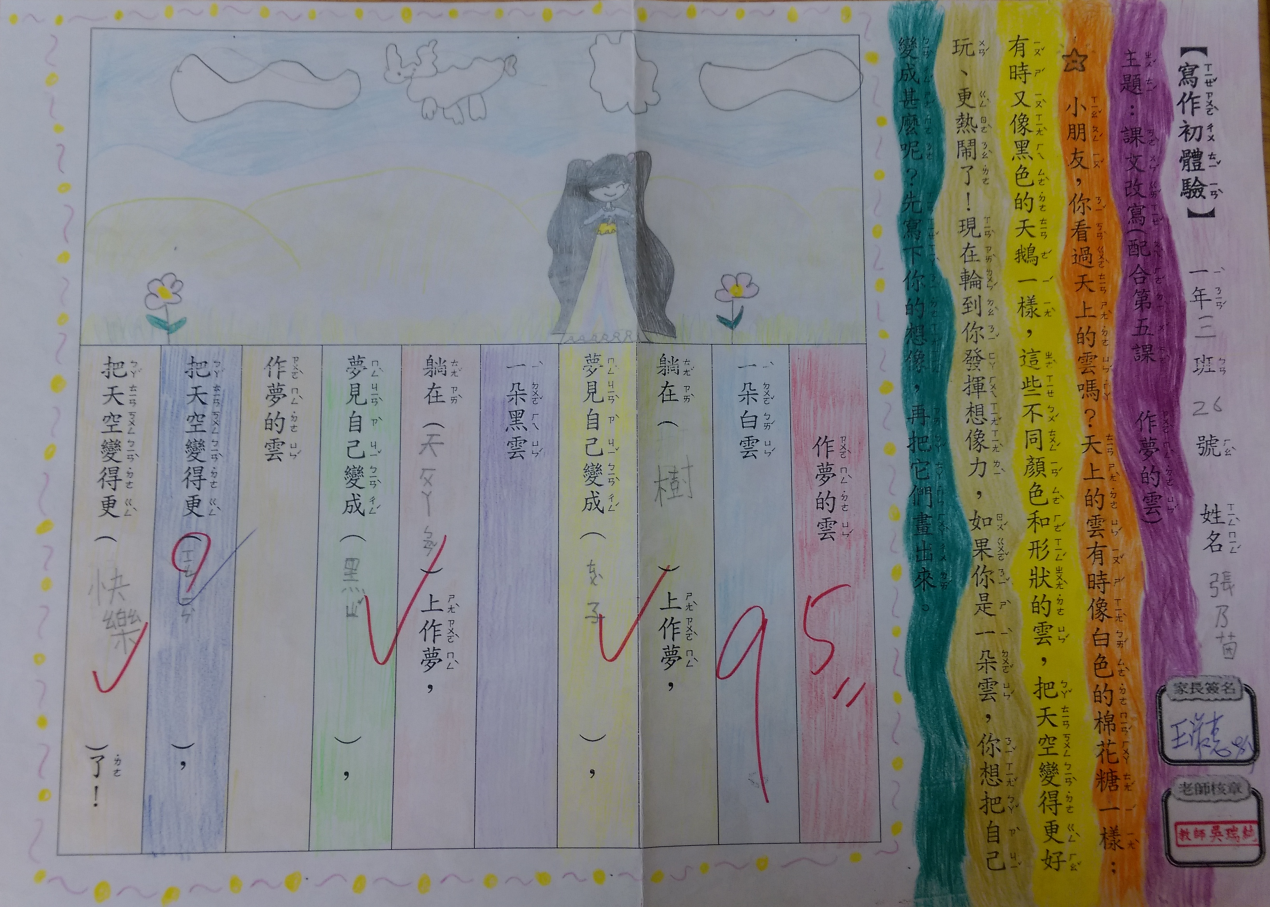 【寫作初體驗】 一年(二)班 26號 姓名 張乃茵
主題：課文改寫(配合第五課 作夢的雲)
小朋友，你看過天上的雲嗎？天上的雲有時像白色的棉花糖一樣；
有時又像黑色的天鵝一樣，這些不同顏色和形狀的雲，把天空變得更好
玩、更熱鬧了！現在輪到你發揮想像力，如果你是一朵雲，你想把自己
變成甚麼呢？先寫下你的想像，再把它們畫出來。
家長簽名
老師核章
教師吳瑞
作夢的雲
95
一朵白雲
躺在(樹)上作夢，
夢見自己變成(子)，
一朵黑雲
躺在(天ㄡㄚ)上作夢，
夢見自己變成(黑)，
作夢的雲
把天空變得更()，
把天空變得更(快樂)了！